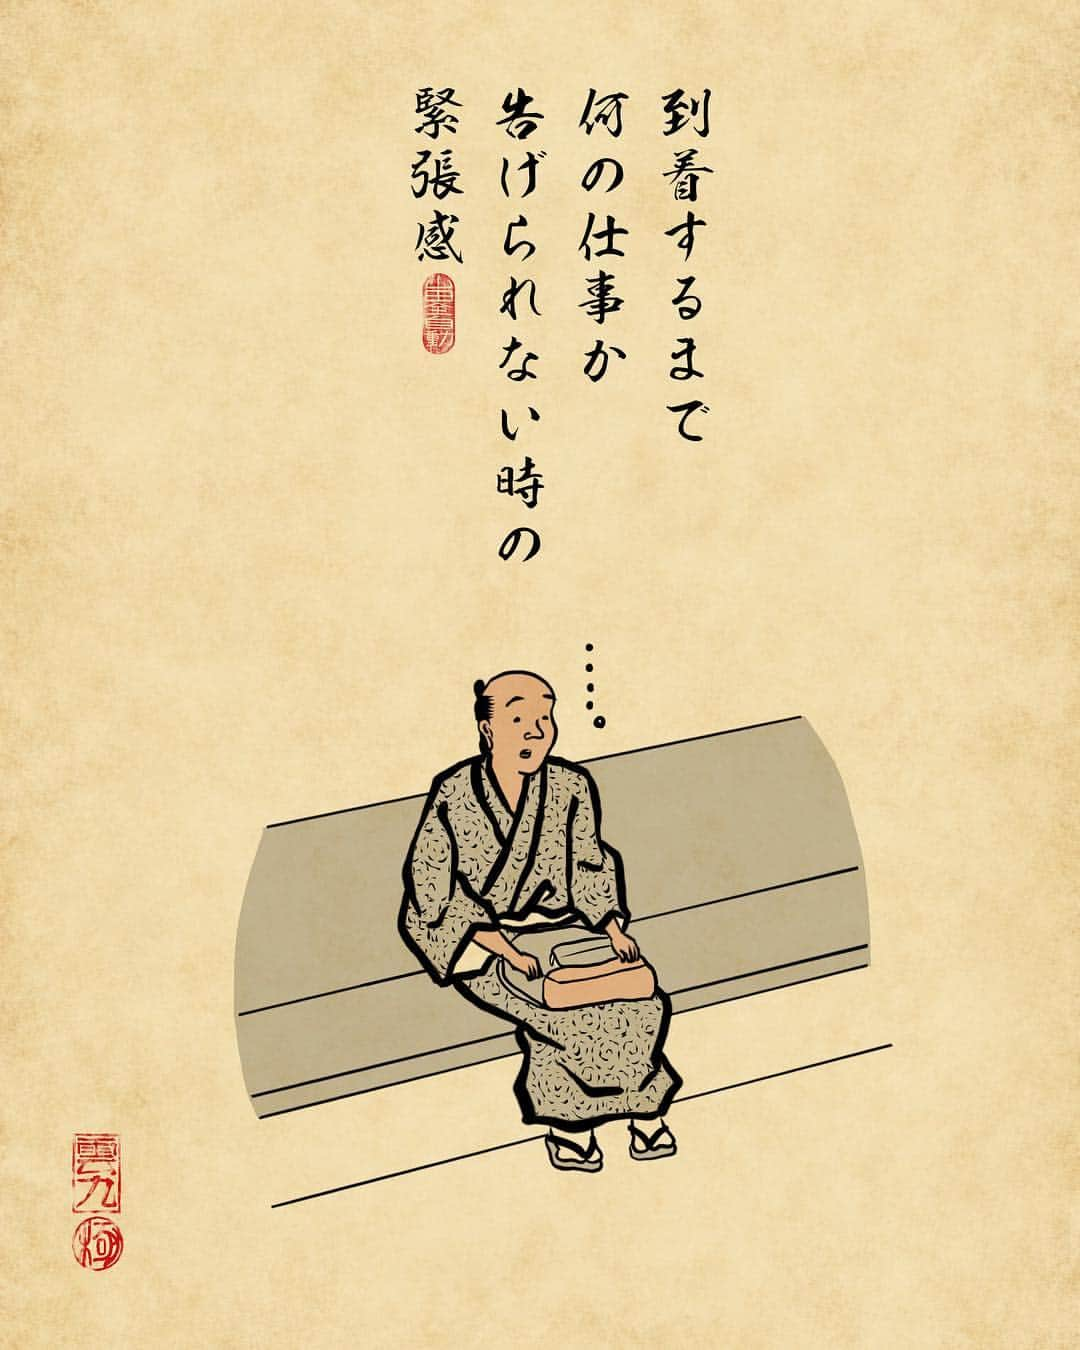 到着するまで
何の仕事か
告げられない時の
緊張感